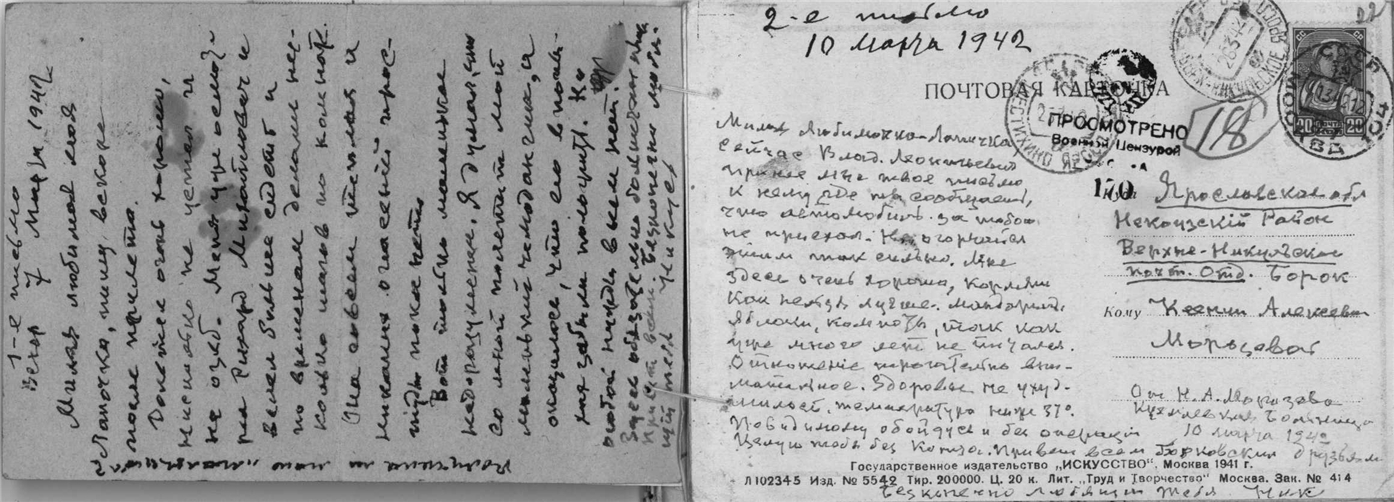 1-е письмо
Вечер 7 Марта 1942
Милая любимая моя
Лапочка, пишу вскоре
после прилета.
Долетел очень хорошо,
нисколько не устал и
не озяб. Меня уже осмот-
рел Рихард Михайлович и
велел больше сидеть и
по временам делать не-
сколько шагов по комнате.
Она совсем теплая и
никаких опасений прос-
туды пока нет.
Вот только маленькое
недоразумение. Я думал, что
со мной полетит мой
маленький чемоданчик, и
оказалось, что его в пол-
ня забыли положить. Но
особой нужды в нем нет.
Здесь обязательно больничная
Привет всем. Бесконечно любя-
щий тебя Никуся
2-е письмо
10 Марта 1942
ПОЧТОВАЯ КАРТОЧКА
ПРОСМОТРЕНО
Военной Цензурой
170
18
СССР
ПОЧТА
20 20
Милая Любимочка-Лапичка
Сейчас Влад. Леонтьевич
принес мне твое письмо
к нему, где ты сообщаешь,
что автомобиль за тобою
не приехал. Не огорчайся
этим так сильно. Мне
здесь очень хорошо, кормят
как нельзя лучше. Мандарины,
яблоки, компоты, так как
уже много лет не питался.
Отношение трогательно вни-
мательное. Здоровье не ухуд-
шилось, температура ниже 37°.
По видимому обойдусь и без операции
Целую тебя без конца. Привет всем Борковским друзьям
Бесконечно любящий тебя Ник
Куда
Ярославская обл
Некоузский Район
Верхне-Никульское
почт. Отд. Борок
Кому Ксении Алексеевне
Морозовой
От Н. А. Морозова
Кремлевская Больница
10 марта 1942
Государственное издательство „ИСКУССТВО". Москва 1941 г.
Л102345 Изд. № 5542 Тир. 200000. Ц. 20 к. Лит. „Труд и Творчество" Москва. Зак. № 414